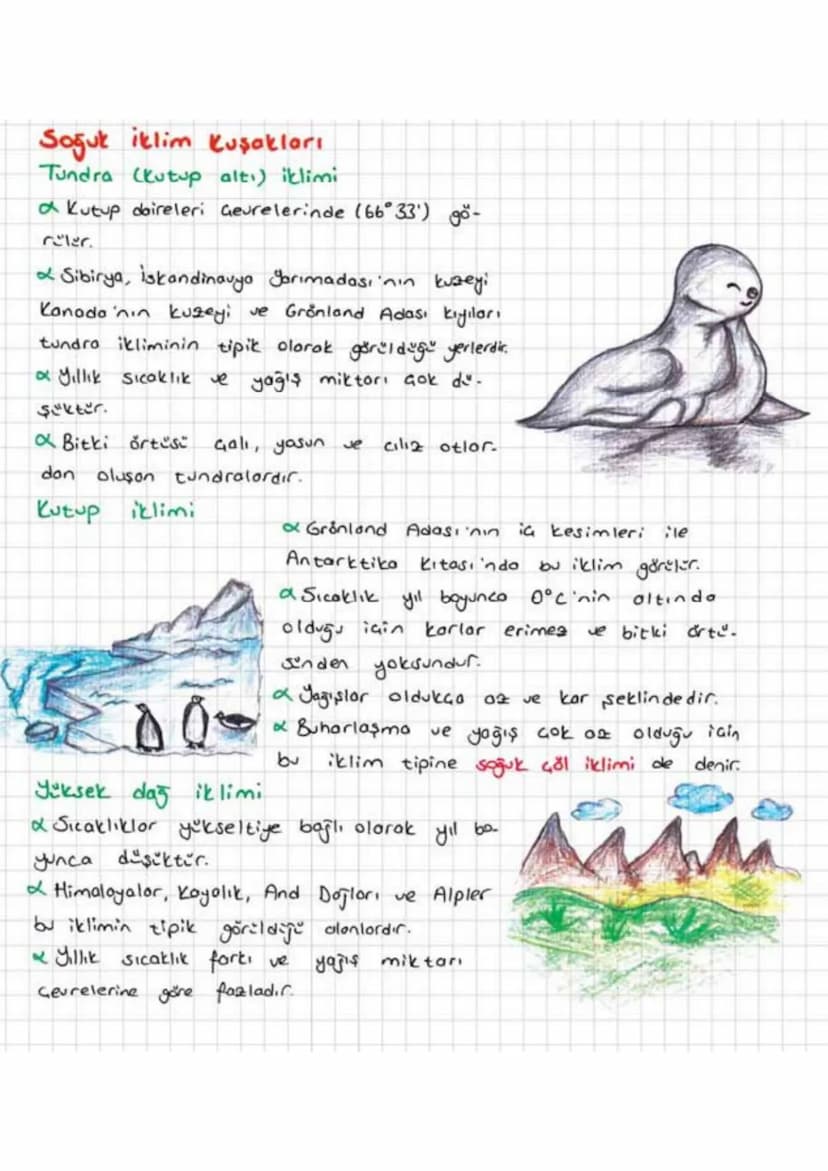 Soğuk iklim Kuşakları
Tundra (Kutup altı) iklimi
α Kutup daireleri çevrelerinde (66°33') gö-
rülür.
α Sibirya, İskandinavya Yarımadası'nın kuzeyi
Kanada'nın kuzeyi ve Grönland Adası kıyıları
tundra ikliminin tipik olarak görüldüğü yerlerdir.
α Yıllık sıcaklık ve yağış miktarı çok dü-
şüktür.
α Bitki örtüsü çalı, yosun ve cılız otlar-
dan oluşan tundralardır.
Kutup iklimi
α Grönland Adası'nın iç kesimleri ile
Antarktika Kıtası'nda bu iklim görülür.
α Sıcaklık yıl boyunca 0°C'nin altında
olduğu için karlar erimez ve bitki örtü-
sünden yoksundur.
α Yağışlar oldukça az ve kar şeklindedir.
α Buharlaşma ve yağış çok az olduğu için
bu iklim tipine soğuk çöl iklimi de denir.
Yüksek dağ iklimi
α Sıcaklıklar yükseltiye bağlı olarak yıl bo-
yunca düşüktür.
α Himalayalar, Kayalık, And Dağları ve Alpler
bu iklimin tipik görüldüğü alanlardır.
α Yıllık sıcaklık farkı ve yağış miktarı
çevrelerine göre fazladır.